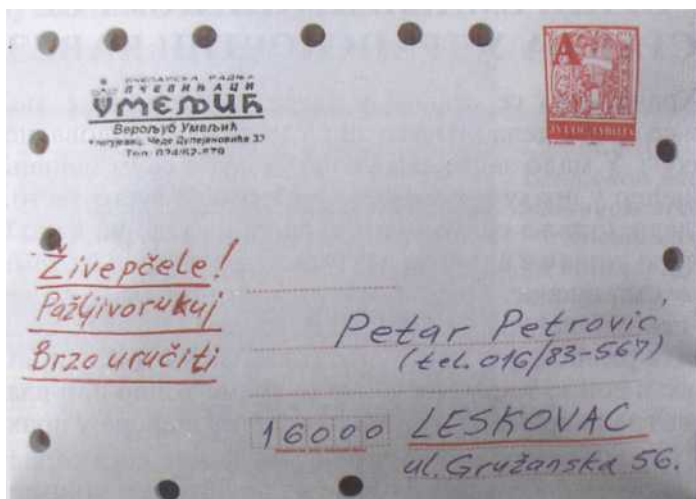 ПЧЕЛАРСКА РАДЊА
ПЧЕЛИЊАЦИ
УМЕЉИЋ
Верољуб Умељић
Крагујевац, Чеде 33
Тел: 034/62-879
A
Žive pčele!
Pažljivo rukuj
Brzo uručiti
Petar Petrovic,
(tel. 016/83-567)
16000 LESKOVAC
ul. Gružanska 56.